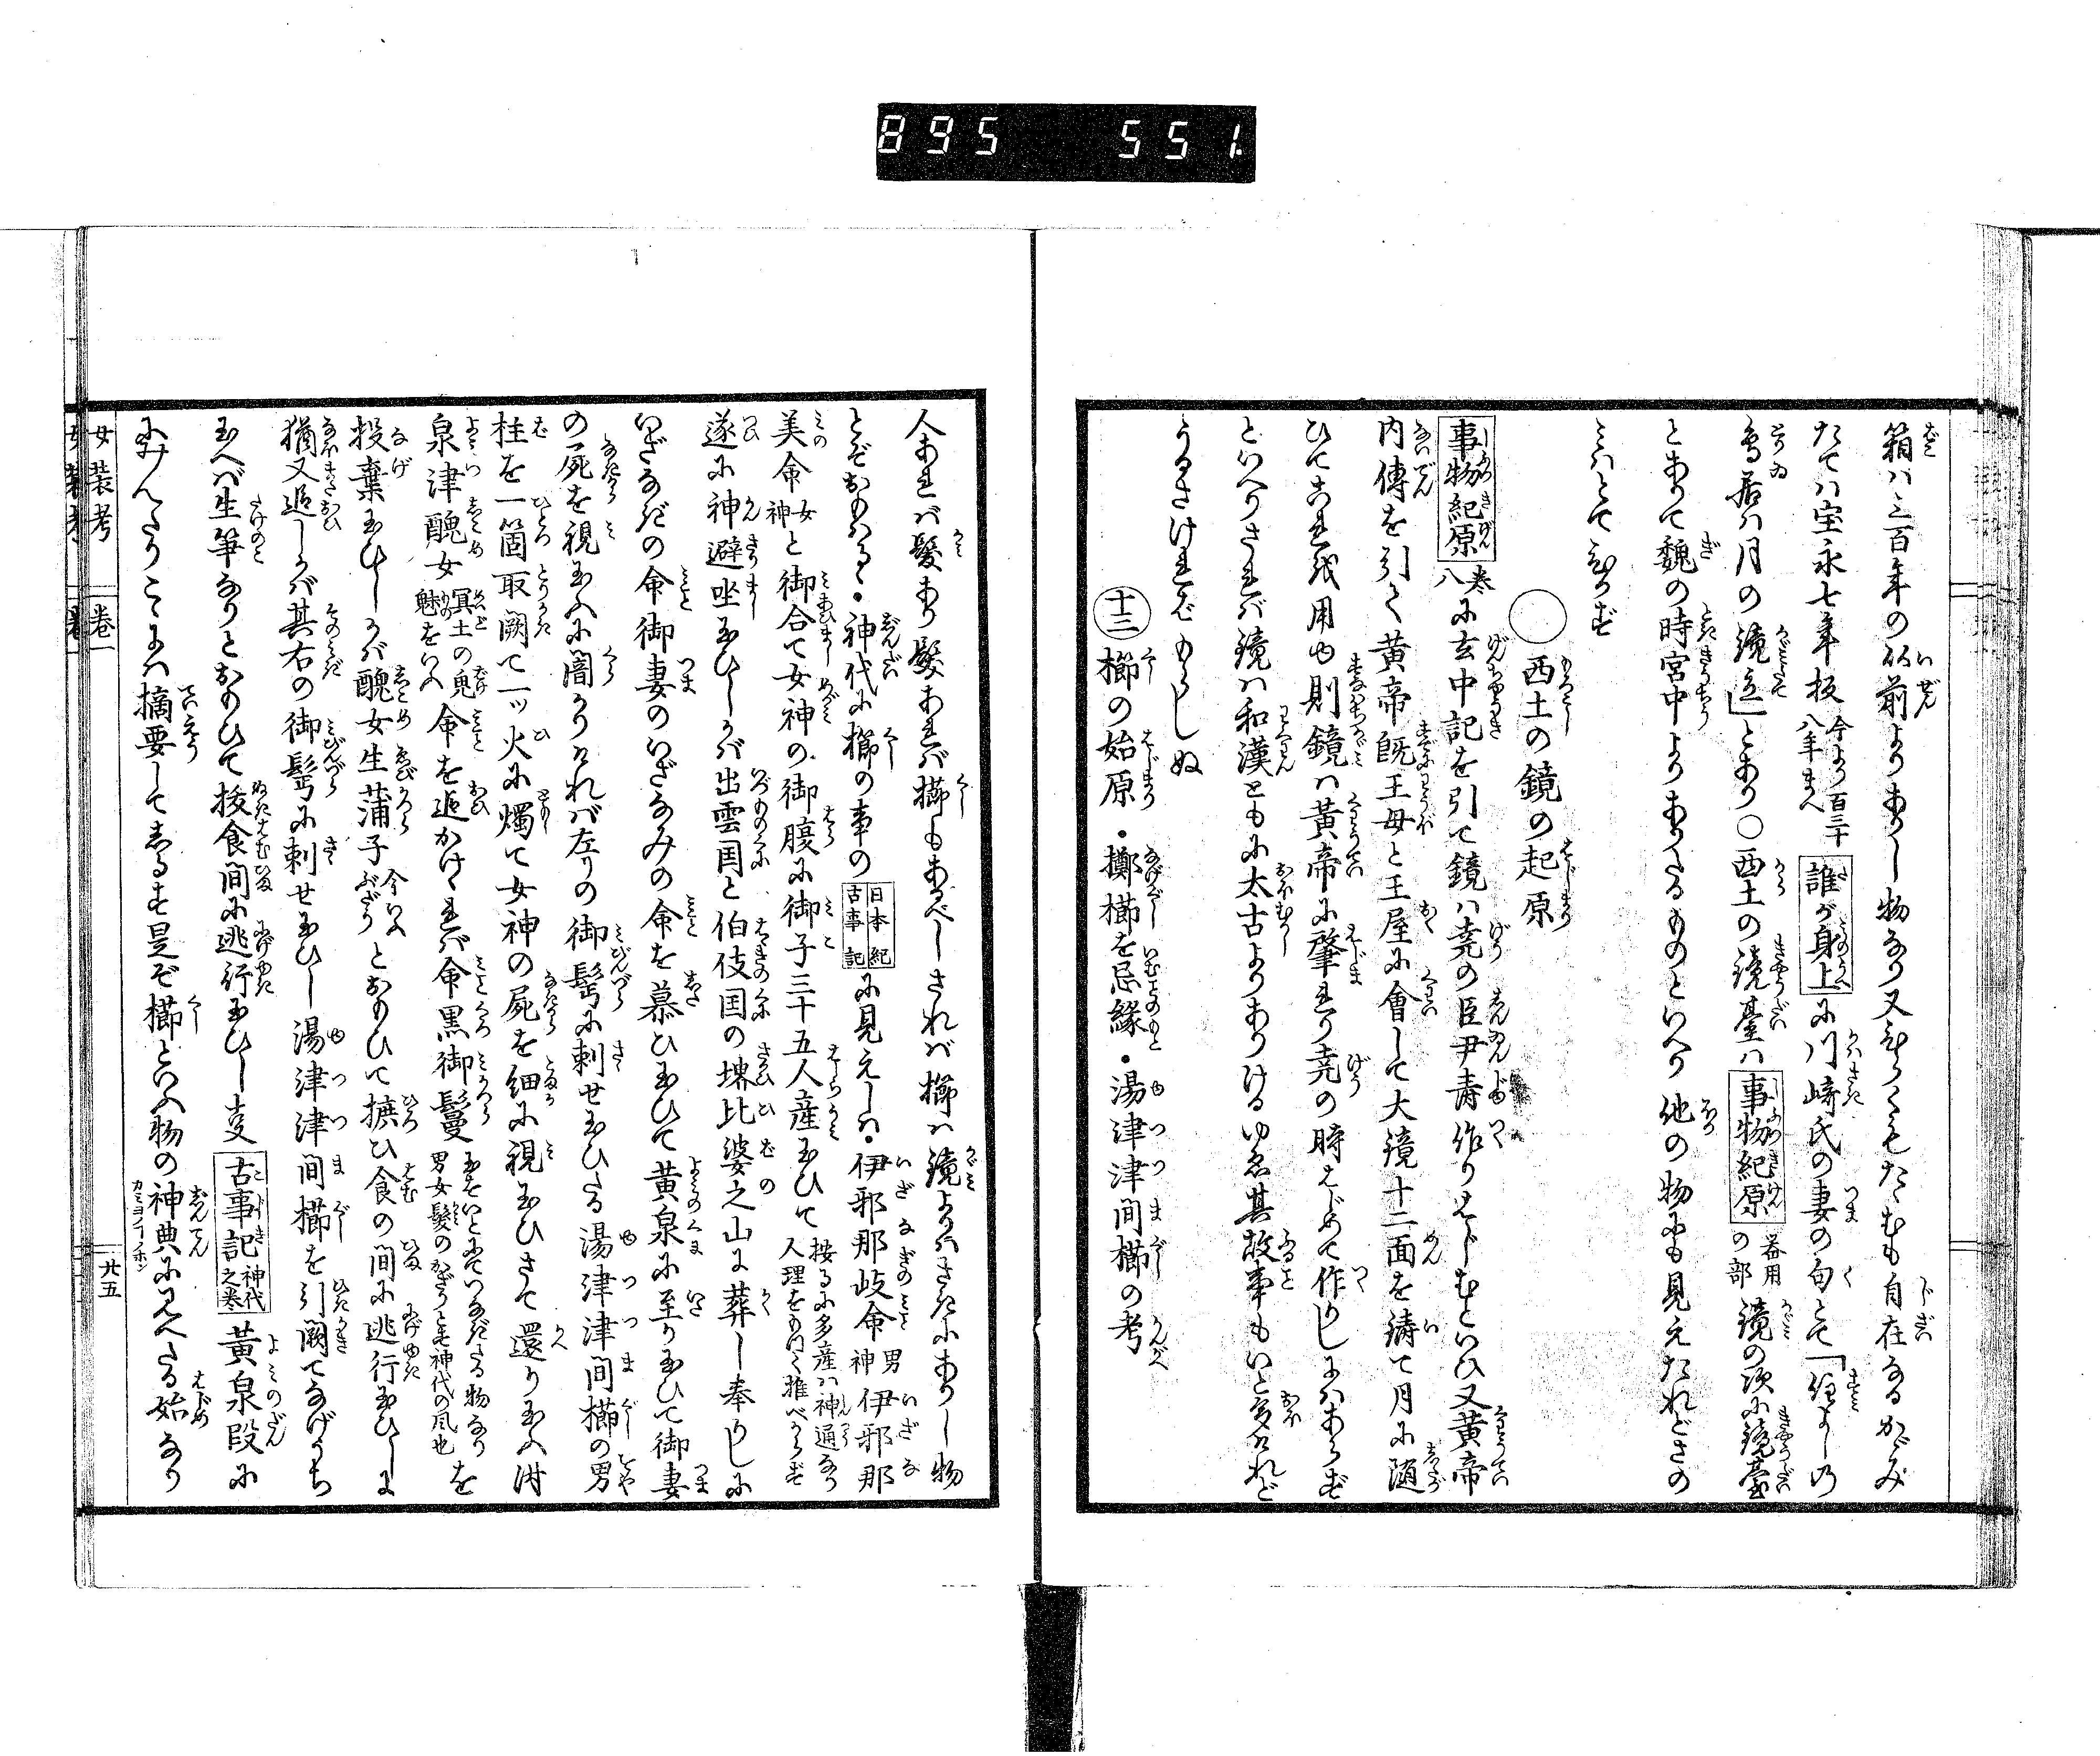 895 551.
箱ハ三百年の以前よりありし物なり又ひらくもたゝむも自在なるかゞみ
たてハ宝永七年板今より百三十八年まへ誰が身上に川崎氏の妻の句とて「住よしの
鳥居ハ月の鏡立」とあり○西土の鏡臺ハ事物紀原器用の部鏡の次に鏡臺
とありて魏の時宮中よりありたるものといへり他の物にも見えたれどさの
ミハとてひかず
○西土の鏡の起原
事物紀原巻八に玄中記を引て鏡ハ堯の臣尹壽作りはじむといひ又黄帝
内傳を引く黄帝既王母と王屋に會して大鏡十二面を鋳て月に随
ひてこれを用ゆ則鏡ハ黄帝に肇れり堯の時はじめて作りしにハあらず
といへりされバ鏡ハ和漢ともに太古よりありけるゆゑ其故事もいと多けれど
うるさけれバもらしぬ
十三 櫛の始原・擲櫛を忌縁・湯津津間櫛の考
人あれバ髪あり髪あれバ櫛もあるべしされバ櫛ハ鏡よりハさきにありし物
とぞおもはる・神代に櫛の事の日本紀古事記に見えしハ・伊邪那岐命男神伊邪那
美命女神と御合て女神の御腹に御子三十五人産玉ひて按るに多産ハ神通なり人理をもつて推べからず
遂に神避坐玉ひしかバ出雲国と伯伎国の堺比婆之山に葬し奉りしに
いざなぎの命御妻のいざなみの命を慕ひ玉ひて黄泉に至り玉ひて御妻
の屍を視玉ふに闇かりけれバ左りの御髻に刺せ玉ひたる湯津津間櫛の男
柱を一箇取闕て一ッ火に燭て女神の屍を細に視玉ひさて還り玉ふ附
泉津醜女冥土の鬼魅をいふ命を追かけゝれバ命黒御鬘玉をいとにていつなぎたる物なり男女髪のかざりとせ神代の風也を
投棄玉ひしかバ醜女生蒲子今いふぶだうとおもひて摭ひ食の間に逃行玉ひしに
猶又追しかバ其右の御髻に刺せ玉ひし湯津津間櫛を引闕てなげうち
玉へバ生笋なりとおもひて抜食間に逃行玉ひし支古事記神代之巻黄泉段に
にみんたりこゝにハ摘要してしるす是ぞ櫛といふ物の神典に見へたる始なり
女装考 巻一 廿五